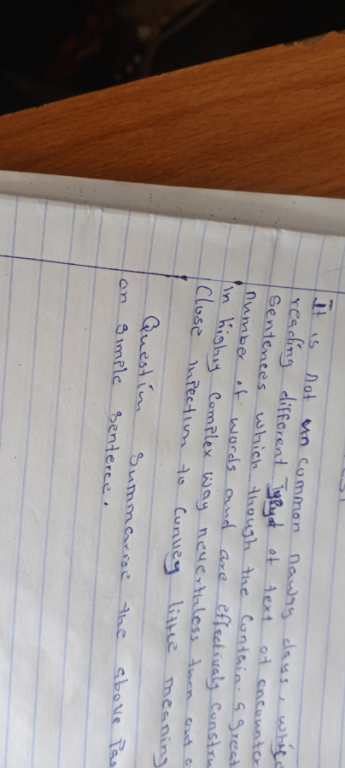 It is not un common naway days, while
reading different Types of text ot encounter
Sentences which though the contain a great
number of words and are effectively constru
in highly complex way neverthless turn out o
Close inspection to convey little meaning
Question Summarise the above Pas
on simple sentence.